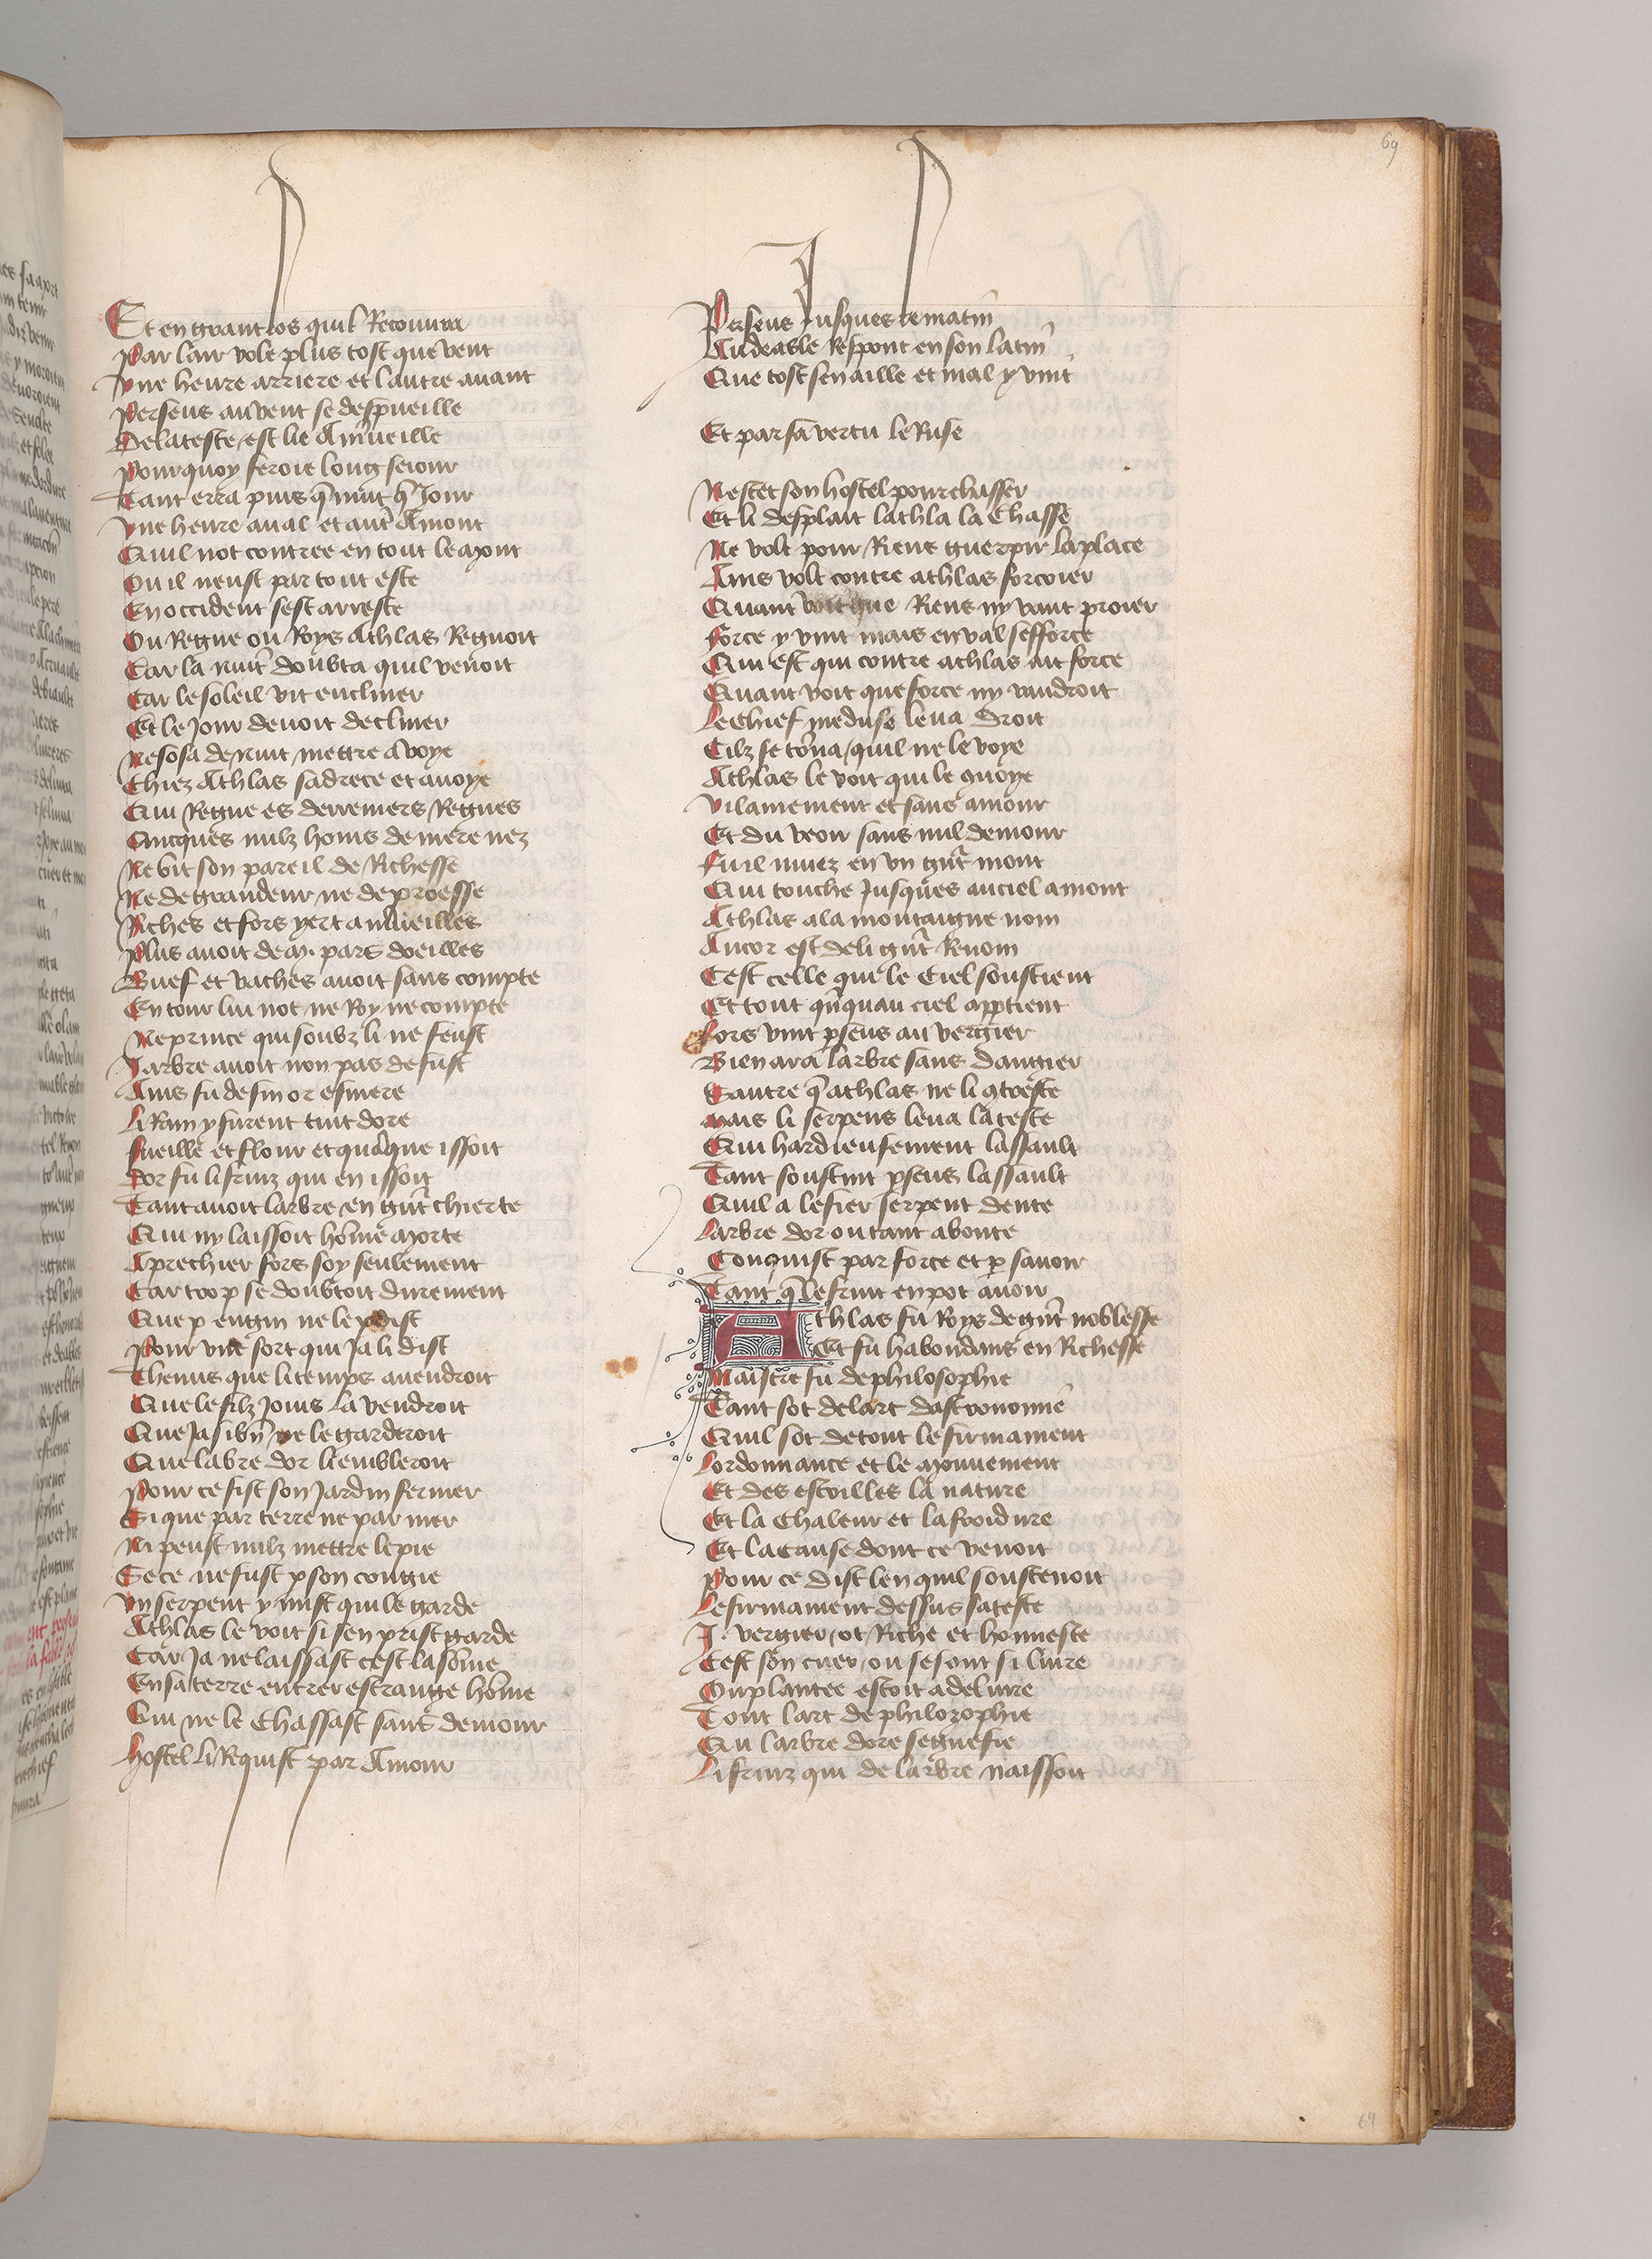 69
Et en grant los quil Recouura
Par lair vole plus tost que vent
Vne heure arriere et lautre auant
Perseus au vent se despueille
De la teste est lie A mueille
Pourquoy feroie long seiour
Tant erra puis q̄ nuit q̄ Jour
Vne heure aual et aut̄ Amont
Quil not contree en tout le mont
Ou il neust par tout este
En occident sest arreste
Ou Regne ou Roys Athlas Regnoit
Car la nuit doubta quil venoit
Car le soleil vit encliner
Et le Jour deuoit decliner
Ne sosa de nuit mettre a voye
Chiez Athlas sadrece et auoye
Qui Regne es derreniers Regnes
Oncques nulz homs de mere nez
Ne vit son pareil de Richesse
Ne de grandeur ne de proesse
Riches et fors yert a mueilles
Plus auoit de .m. pars doeilles
Buef et vaches auoit sans compte
En tour lui not ne Roy ne compte
Ne prince qui soubz li ne feust
Jarbre auoit non pas de fust
Ains fu de fin or esmere
Li Rain y furent tuit dore
Fueille et flour et quāque issoit
Dor fu li fruiz qui en issoit
Tant auoit larbre en gn̄t chierte
Qui ny laissoit hōme morte
Aprechier fors soy seulement
Car trop se doubtoit durement
Que p engin ne le pdist
Pour vne sort qui Ja li dist
Themis que li temps auendroit
Que le filz Jouis la vendroit
Que Ja si bn̄ ne le garderoit
Que labre dor li embleroit
Pour ce fist son Jardin fermer
Si que par terre ne par mer
Ni peust nulz mettre le pie
Se ce ne fust p son congie
Vn serpent y mist qui le garde
Athlas le voit si sen prist garde
Car Ja ne laissast cest la sōme
En sa terre entrer estrange hōme
Qui ne le Chassast sans demour
Hostel li Requist par Amour
Perseus Jusques le matin
Au deable Respont en son latin
Que tost sen aille et mal y vint
Et par sa vertu le Ruse
Nestet son hostel pourchasser
Et li desplait lathla la Chasse
Ne volt pour Riens guerpir la place
Ains volt contre athlas forcoier
Quant voit que Riens ny vaut proier
Force y vint mais en val sefforce
Qui est qui contre athlas ait force
Quant voit que force ny vaudroit
Le Chief meduse leua droit
Cilz se torna quil ne le voye
Athlas le voit qui le guoye
Vilainement et sans amour
Et du veoir sans nul demour
Fu il muez en vn gn̄t mont
Qui touche Jusques au ciel amont
Athlas a la montaigne nom
Ancor est de li gn̄t Renom
Cest celle qui le Ciel soustient
Et tout qn̄quau ciel apptient
Lors vint pseus au vergier
Bien ara larbre sans dangier
Lautre q̄ athlas ne li 9treste
Mais li serpens leua la teste
Qui hardieusement lassault
Tant soustint pseus lassault
Quil a le fier serpent dente
Larbre dor ou tant a bonte
Conquist par force et p sauoir
Tant q̄ le fruit en pot auoir
Athlas fu Roys de gn̄t noblesse
Et fu habondans en Richesse
Maistre fu de philosophie
Tant sot de lart dastronomie
Quil sot de tout le firmament
Lordonnance et le mouuement
Et des estoilles la nature
Et la Chaleur et la froidure
Et la cause dont ce venoit
Pour ce dist len quil soustenoit
Le firmament dessus sa teste
J. vergier ot Riche et honneste
Cest son cuer ou se sont si liure
Ou plantee estoit a deliure
Tout lart de philozophie
Qu larbre dore segnefie
Li fruiz qui de larbre naissoit
69